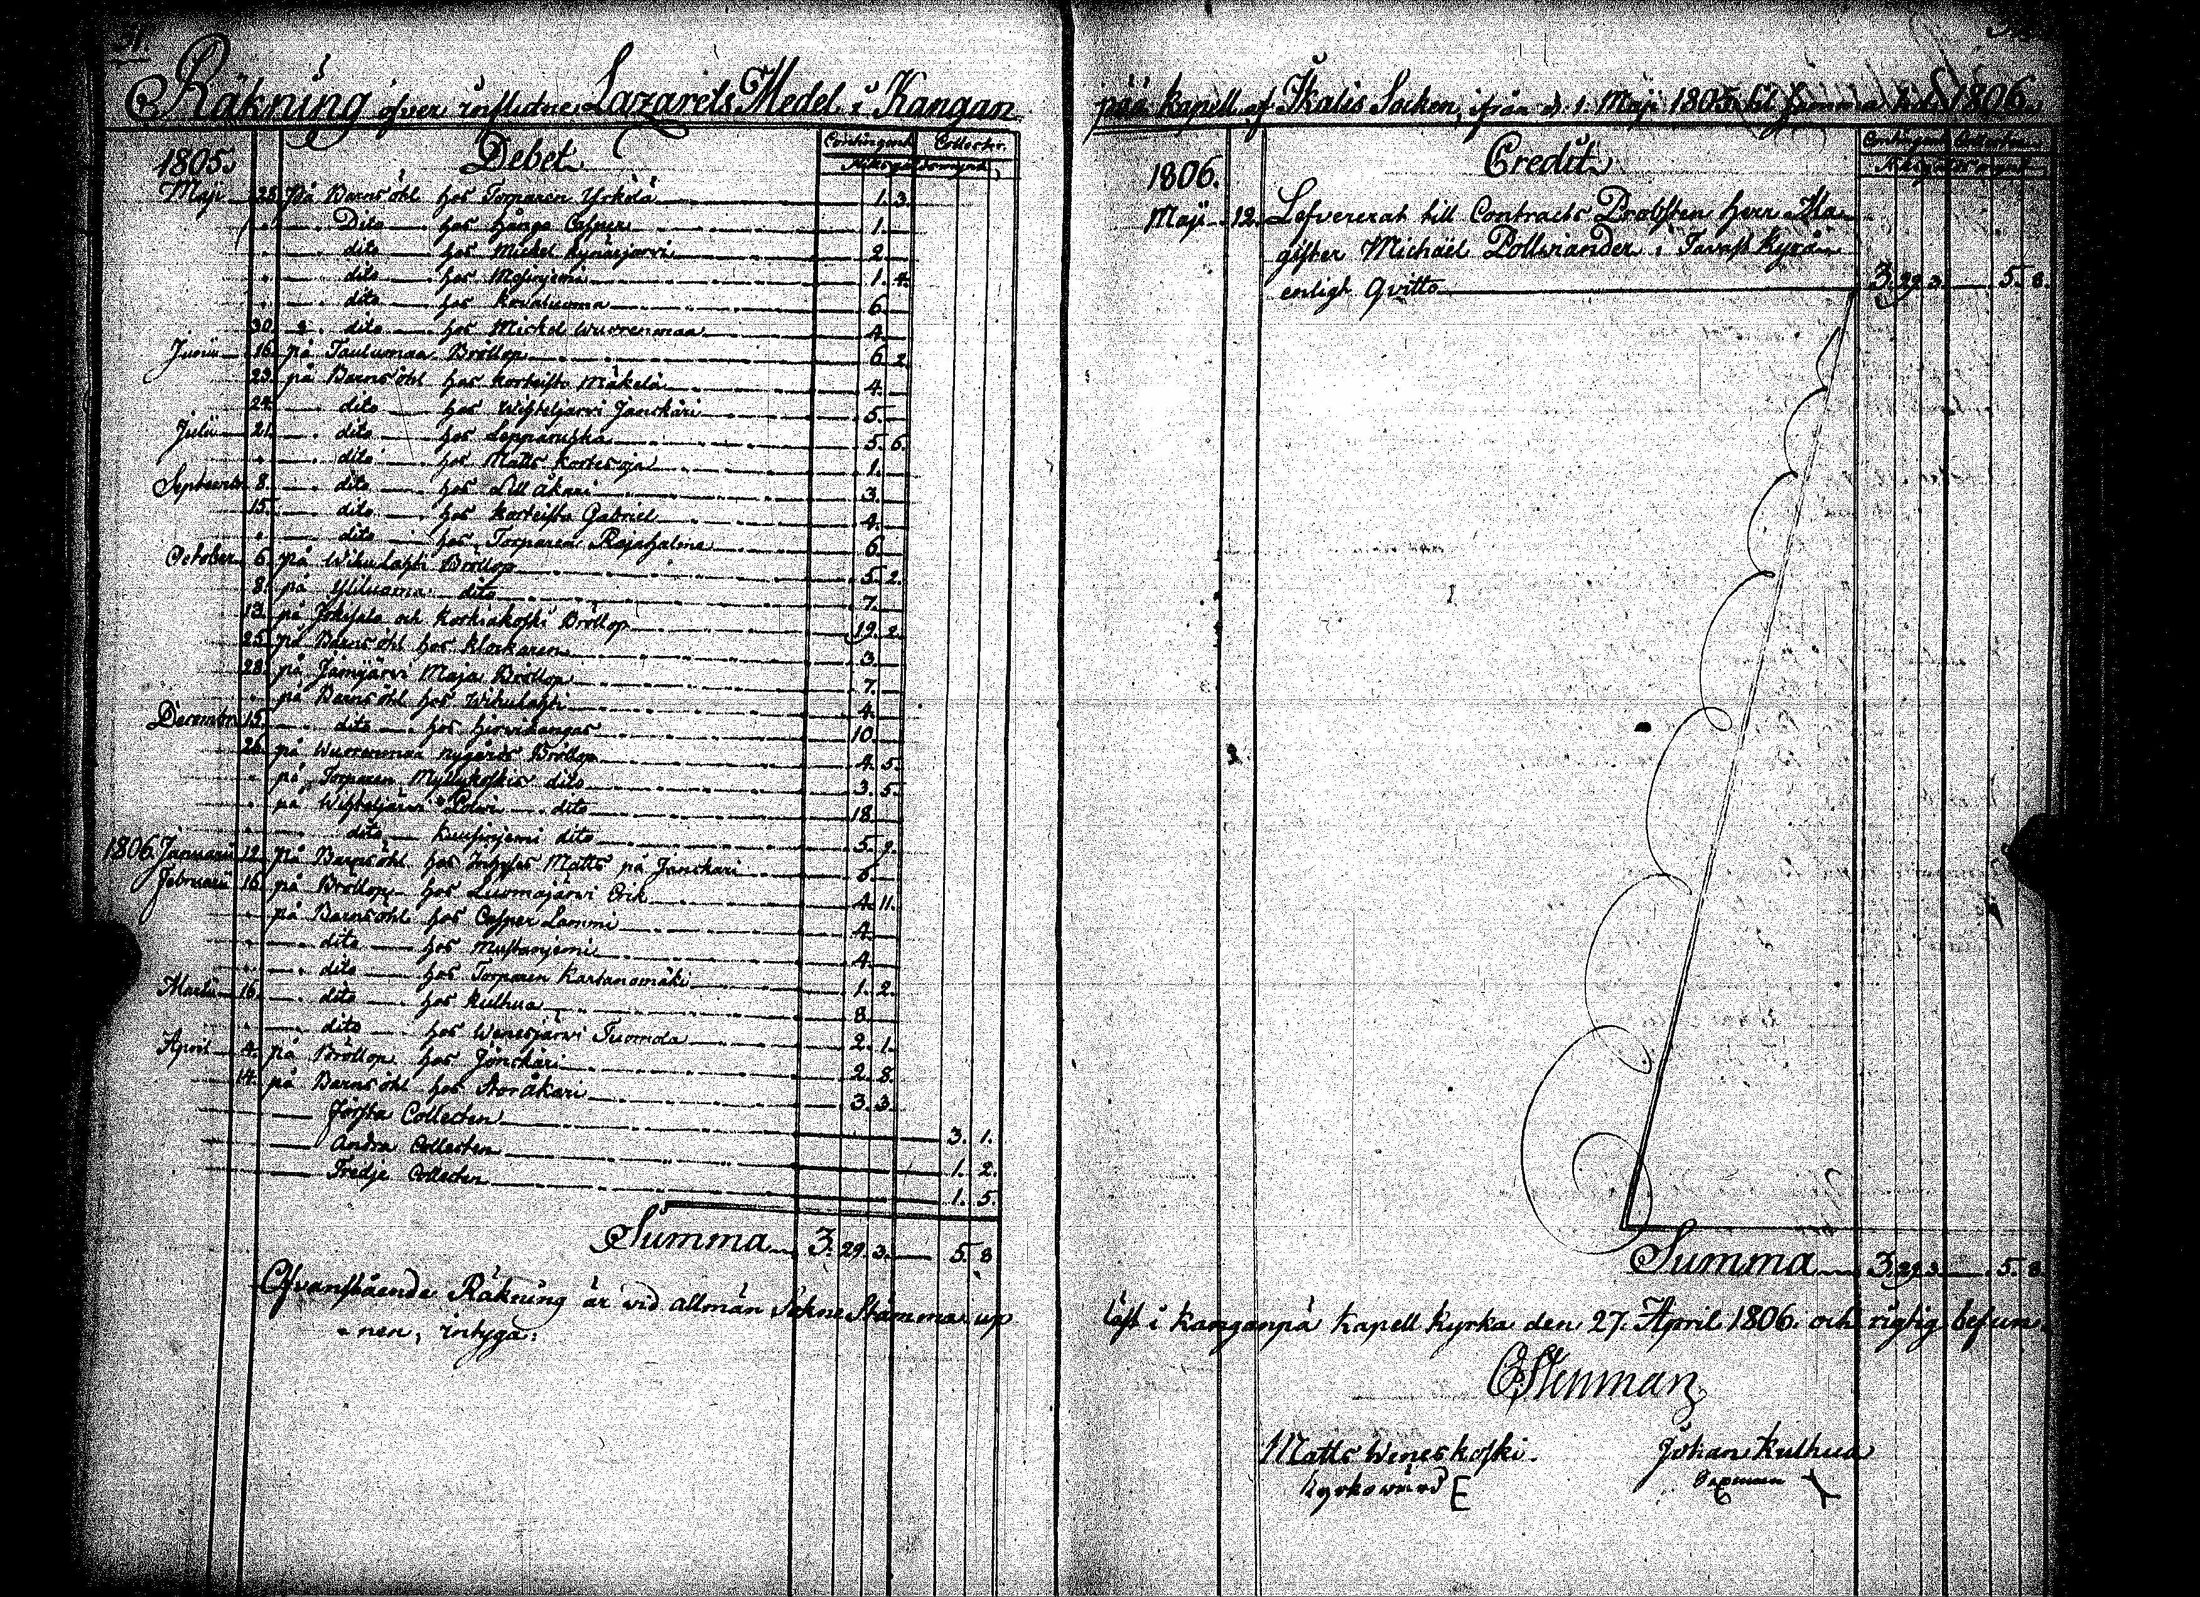 51.
Räkning öfver influtne Lazarets Medel i Kangan
1805. Debet Contingent Collecter.
Maji 28. På Barnsöhl hos Torparen Yrkölä 1. 3.
Dito hos Hångo Casper 1.
dito hos Mickel Kynäsjärvi 2
dito hos 1. 4.
dito hos Kovaluoma 6
30. dito hos Mickel Wuorenmaa 4.
Junii 16. på Taulumaa Bröllop 6. 2.
23. på Barnsöhl hos Korteisto Mäkelä 4.
24. dito hos Wihteljärvi Janckäri 5.
Julii 21. dito hos Lepparuhka 5. 6.
dito hos Matts Kortesoja 1.
Septembr 8. dito hos Lill Åkari 3.
15. dito hos Korteisto Gabriel 4.
dito hos Torparen Rajahalme 6.
October 6. på Wihulahti Bröllop 5. 2.
8. på Yliluoma dito 7.
13. på Jokisalo och Koskiakoski Bröllop 19. 2.
25. på Barnsöhl hos Klockaren 3.
28. på Jämijärvi Maja Bröllop 7.
på Barnsöhl hos Wihulahti 4.
Decembr 15. dito hos Hirvikangas 10.
26. på Wuorenmaa nygårds Bröllop 4. 5.
på Torparen Myllykoskis dito 3. 5.
på Wihteljärvi dito 18.
dito Kuusinjemi dito 5. 9.
1806. Januarii 12. På Barnsöhl hos Inhyses Matts på Janckari 6.
Februarii 16. på Bröllop hos Luomajärvi Erik 4. 11.
på Barnsöhl hos Casper Lammi 4.
dito hos Mustanjemi 4.
dito hos Torparen Kartanomäki 1. 2.
Martii 16. dito hos Kulhua 8.
dito hos Wenesjärvi Tuomola 2. 1.
April 4. på Bröllop hos Jonckäri 2. 8.
14. på Barnsöhl hos Storåkari 3. 3.
Första Collecten 3. 1.
Andra Collecten 1. 2.
Tredje Collecten 1. 5.
Summa 3. 29. 3. 5. 8
Ofvanstående Räkning är vid allmän Sokne Stämma up
nen, intyga:
pää Kapell af Ikalis Socken, ifrån d. 1 Maji 1805 til samma tid 1806.
1806. Credit
Maji 12. Lefvererat till Contracts Probsten Herr Ma
gister Michäel Pollviander i Tavast Kyrå
enligt Qvitto 3. 29. 3. 5. 8.
Summa 3. 29. 3. 5. 8.
läst i Kanganpä Kapell Kyrka den 27. April 1806. och rigtig befun
Stenman
Matts Weneskoski. Johan Kulhua
Kyrkovärd Sexman